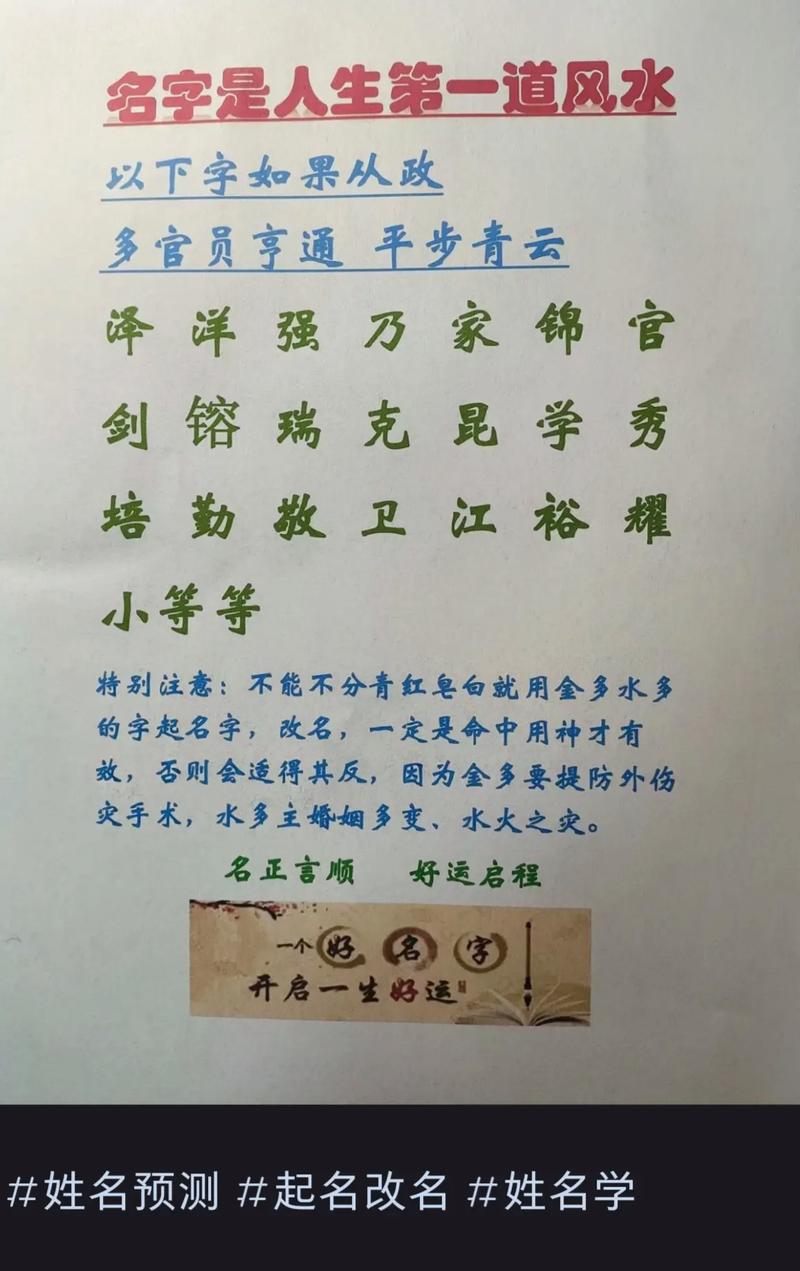 名字是人生第一道风水
以下字如果从政
多官员亨通 平步青云
泽 洋 强 乃 家 锦 官
剑 镕 瑞 克 昆 学 秀
培 勤 敬 卫 江 裕 耀
小等等
特别注意：不能不分青红皂白就用金多水多
的字起名字，改名，一定是命中用神才有
效，否则会适得其反，因为金多要提防外伤
灾手术，水多主婚姻多变、水火之灾。
名正言顺 好运启程
一个好名字
开启一生好运
#姓名预测 #起名改名 #姓名学